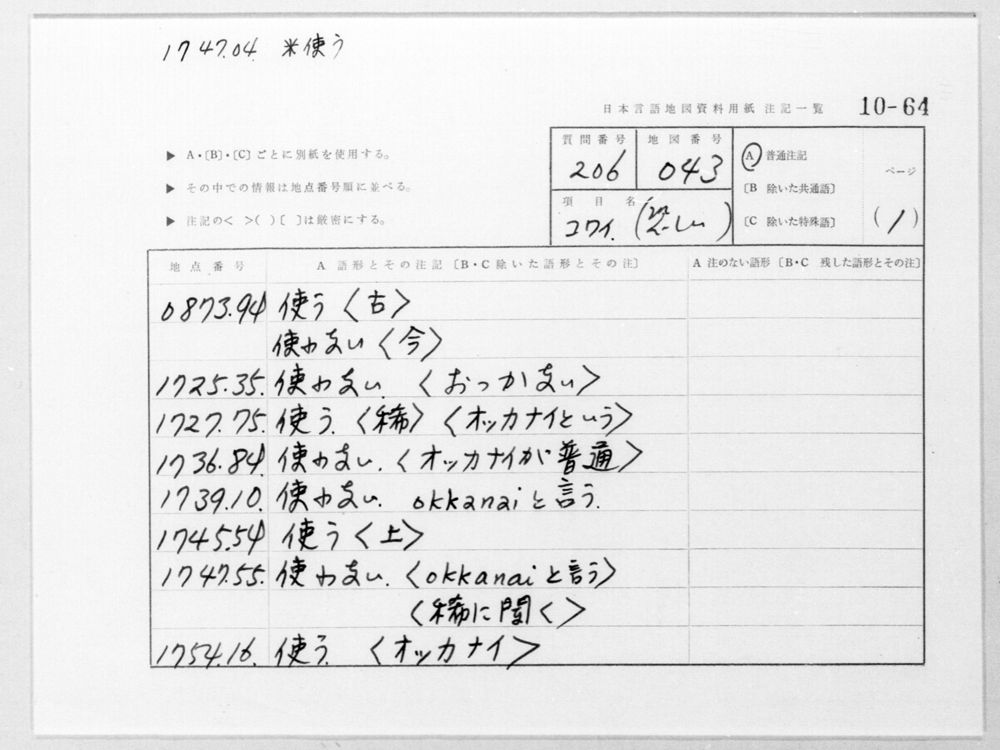 1747.04 米使う
日本言語地図資料用紙 注記一覧 10-64
▶ A・〔B〕・〔C〕ごとに別紙を使用する。
▶ その中での情報は地点番号順に並べる。
▶ 注記の< >( )〔 〕は厳密にする。
質問番号 地図番号
206 043
項目名
コワイ. (恐しい)
Ⓐ 普通注記
〔B 除いた共通語〕
〔C 除いた特殊語〕
ページ
(1)
地点番号 A 語形とその注記〔B・C 除いた語形とその注〕 A 注のない語形〔B・C 残した語形とその注〕
0873.94 使う〈古〉
使わない〈今〉
1725.35. 使わない 〈おっかない〉
1727.75. 使う.〈稀〉〈オッカナイという〉
1736.84. 使わない.〈オッカナイが普通〉
1739.10. 使わない. okkanaiと言う.
1745.54 使う〈上〉
1747.55. 使わない.〈okkanaiと言う〉
〈稀に聞く〉
1754.16. 使う. 〈オッカナイ〉